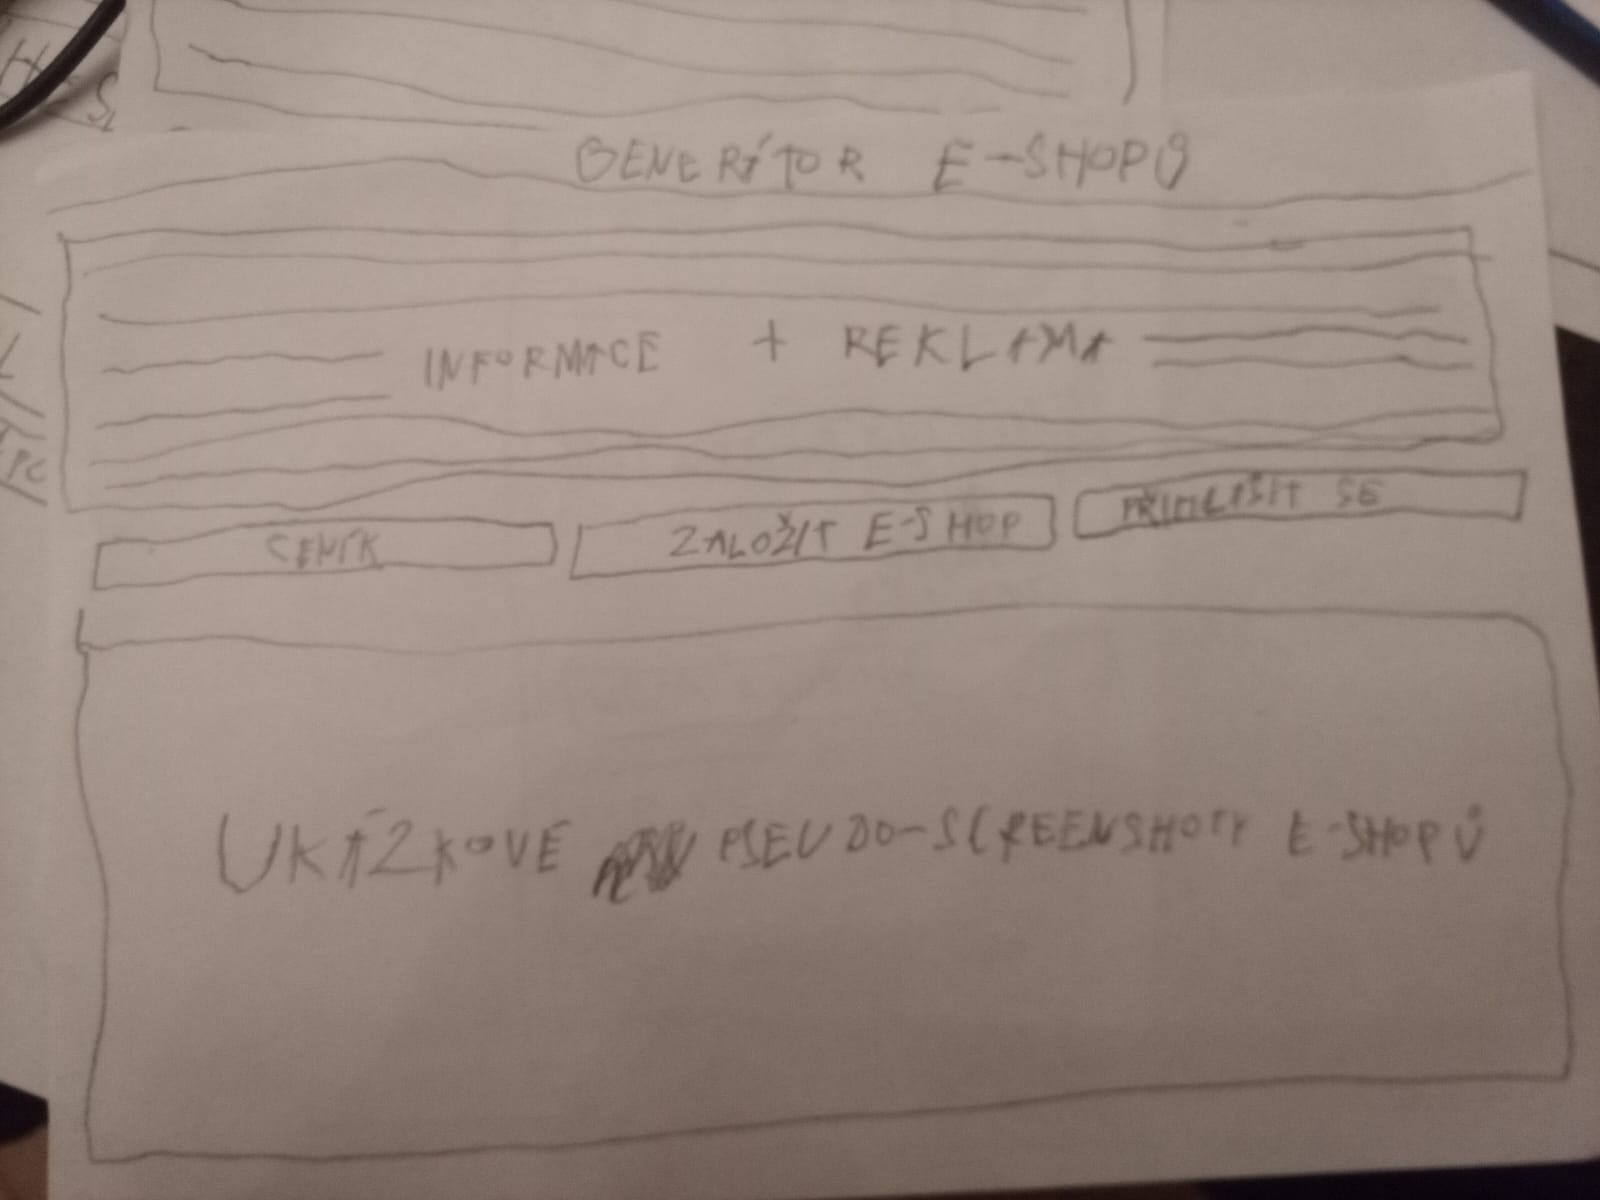 GENERÁTOR E-SHOPŮ
INFORMACE + REKLAMA
CENÍK
ZALOŽIT E-SHOP
PŘIHLÁSIT SE
UKÁZKOVÉ PSEUDO-SCREENSHOTY E-SHOPŮ